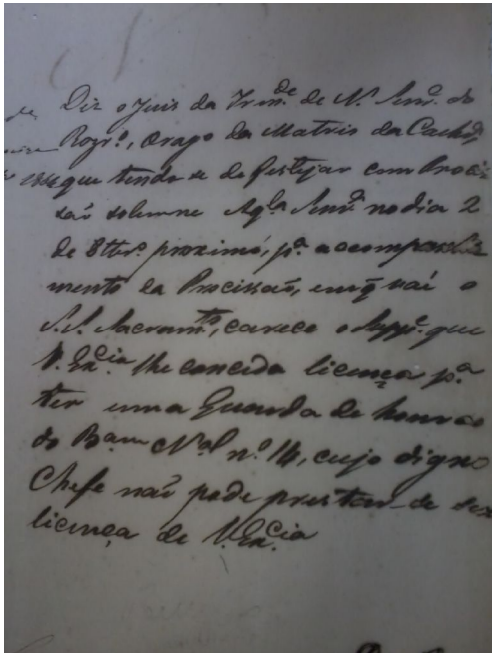 Diz o Juis da Irm.de de N. Snr.a do
Rozr.o, Orago da Matris da Cachoei
que tendo-se de festejar com Procis
saõ solemne aq.la Snr.a no dia 2
de 8tbr.o proximo, p.a acompanha
mento da Procissaõ, em q' vai o
S.S. Sacram.to, carece o Supp.e que
V. Ex.cia lhe conceda licença p.a
ter uma Guarda de honra
do Bam N.al n.o 14, cujo digno
Chefe naõ pode prestar-se sem
licença de V. Ex.cia